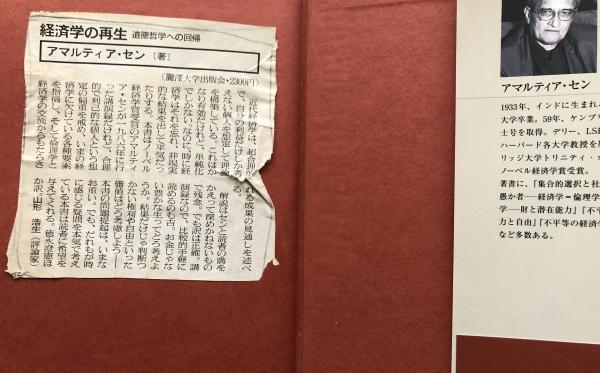 経済学の再生 道徳哲学への回帰
アマルティア・セン [著]
(麗澤大学出版会・2300円)
近代経済学は、超合理的
で、自分の利益だけしか
えない個人を想定して理論
を構築している。これはか
なり有効だけれど、単純化
でしかない。なのに時に経
済学はそれを忘れ、非現実
的な結果を出して平気だっ
たりする。本書はノーベル
経済学賞受賞のアマルティ
ア・センが一九八六年に行
った講演録だけれど、合理
的で利己的な個人という想
定の偏重を戒め、いまの経
済学に欠けている各種要素
を指摘し、そして倫理学と
経済学の交流からもたらさ
れる成果の見通しを述べ
る。
解説はセンと読者の溝を
かえって深めかねないもの
で残念。でも訳は正確。講
演録なので、比較的手軽に
読めるのも吉。お金じゃな
い豊かな生ってどう考えよ
うか。結果だけじゃ判断つ
かない権利や自由といった
価値はどう考慮しよう——
本書の問題提起は、いまな
お重い。でも、だれもが時
に感じる疑問を本気で考え
ている本書は読者に希望を
与えてくれる。徳永澄憲ほ
か訳。山形 浩生(評論家)
アマルティア・セン
1933年、インドに生まれ
大学卒業。59年、ケンブ
士号を取得。デリー、LSE
ハーバード各大学教授を
リッジ大学トリニティ・
ノーベル経済学賞受賞。
著書に、『集合的選択と社
愚か者—経済学=倫理学
学—財と潜在能力』『不平
力と自由』『不平等の経済学
など多数ある。